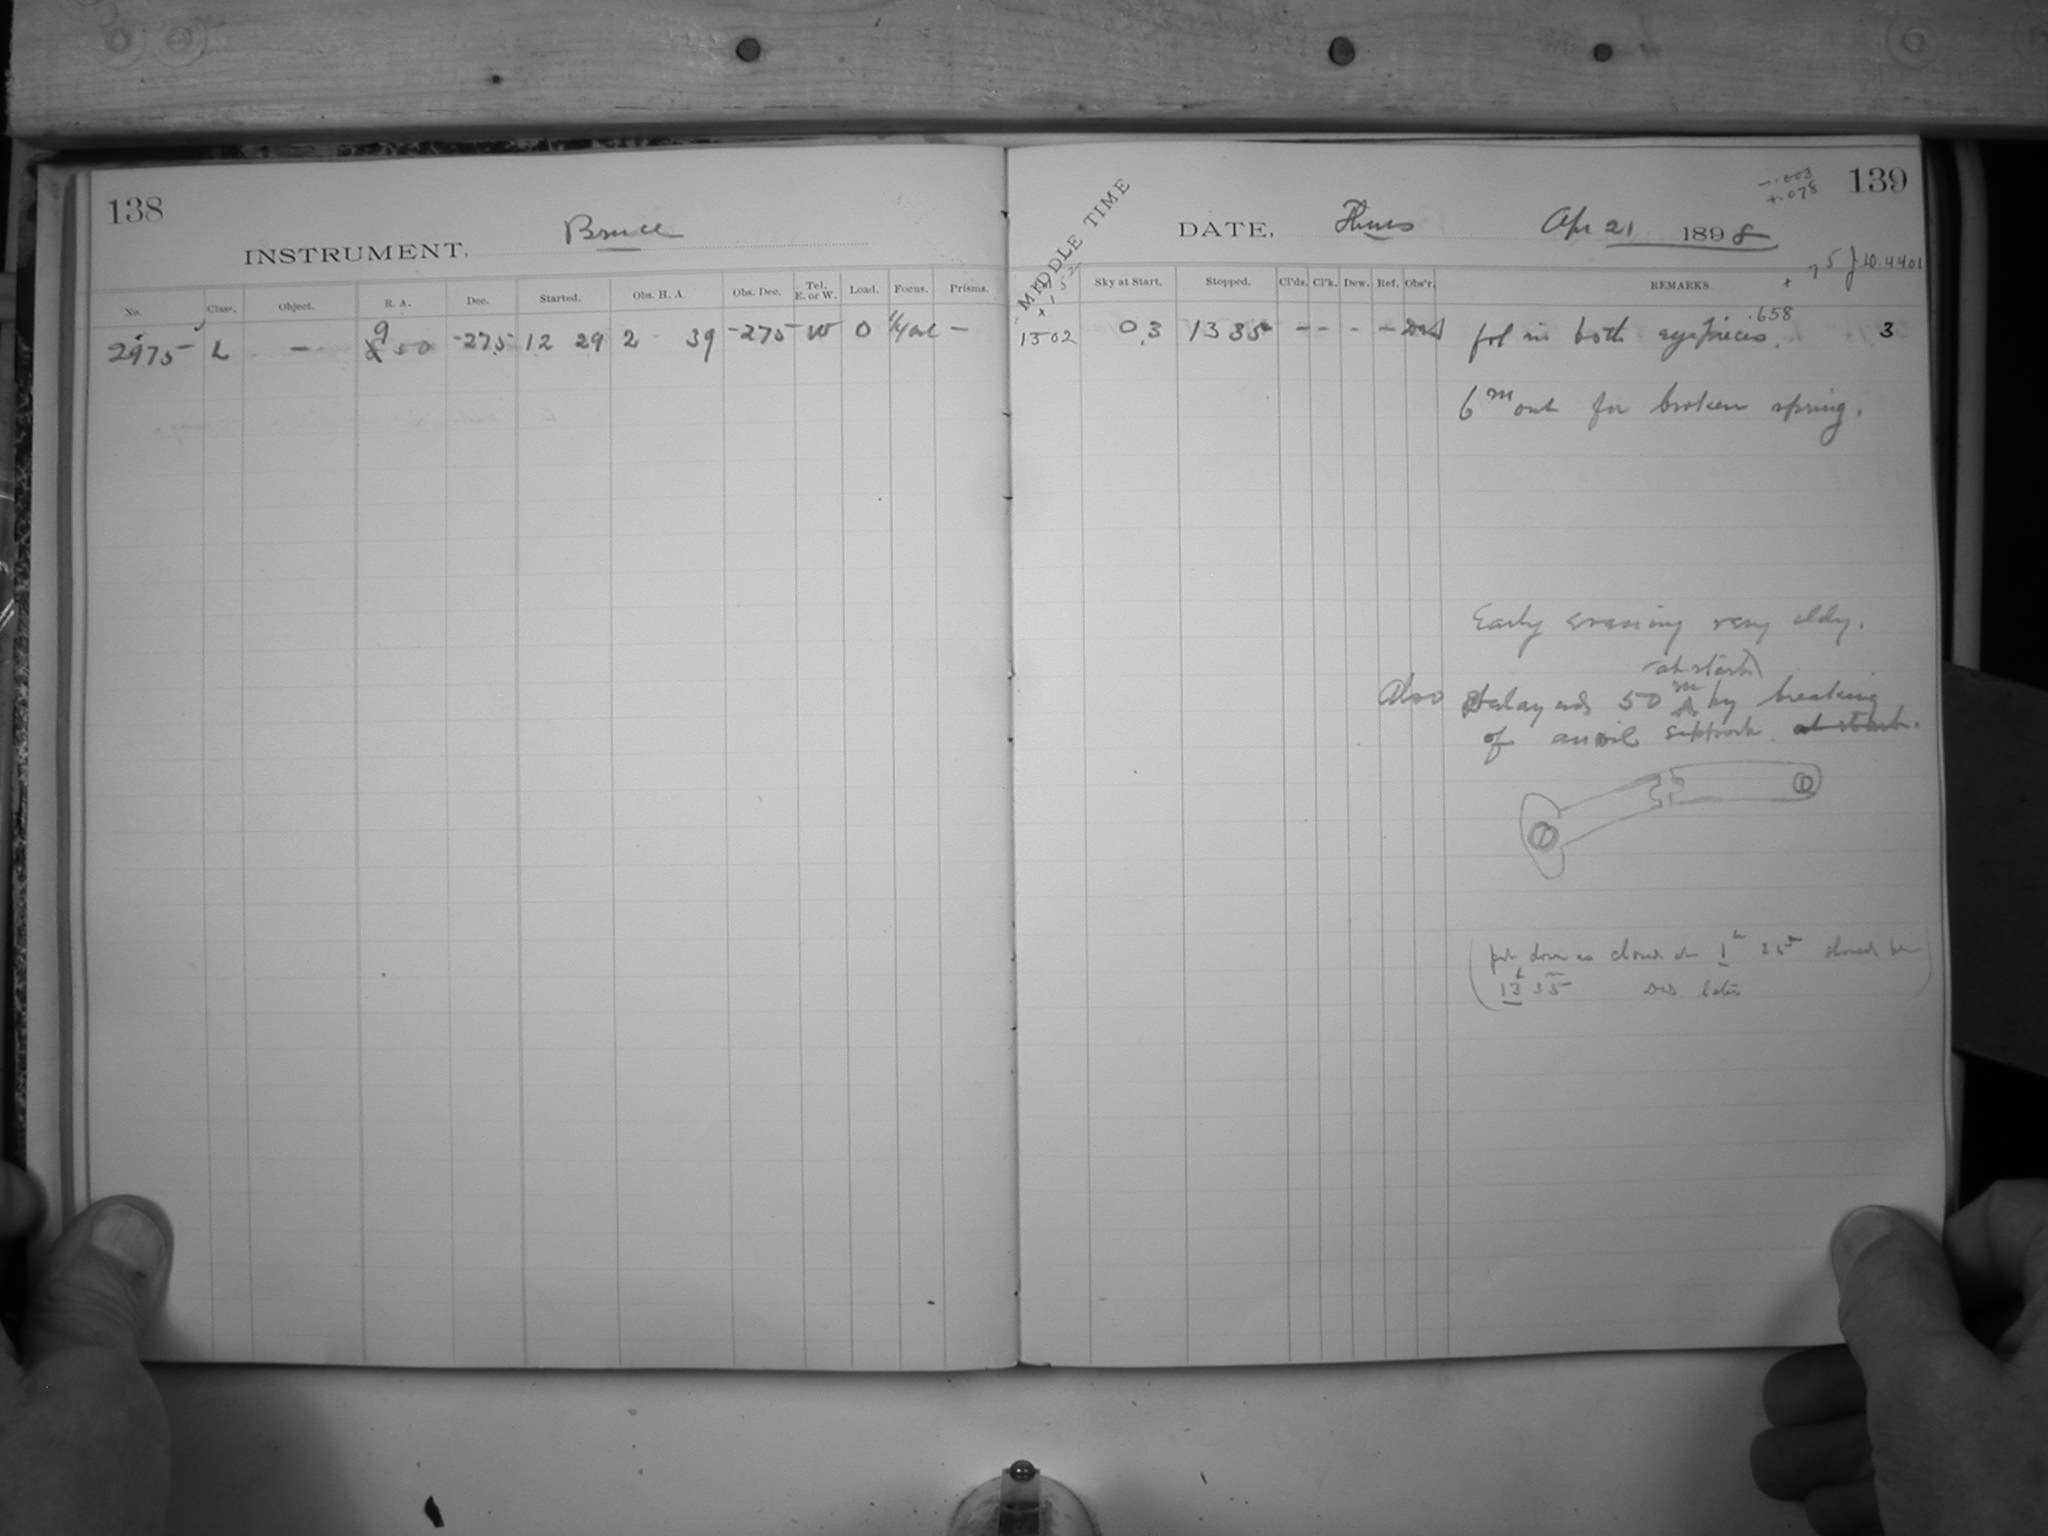 138
INSTRUMENT, Bruce
No. Class. Object. R. A. Dec. Started. Obs. H. A. Obs. Dec. Tel. E. or W. Load. Focus. Prisms.
2975 L – 9 50 -27.5 12 29 2 39 -27.5 W 0 –
139
-.003
+.078
MIDDLE TIME
DATE, Thurs Apr 21 1898
10.4401
Sky at Start. Stopped. Cl'ds. Cl'k. Dew. Ref. Obs'r. REMARKS.
.658
1302 0.3 13 35 – – – – fol in both eyepieces. 3
6m out for broken spring.
Early evening very cldy.
at start
Also delayed 50m by breaking
of anvil support. at start.
(put down as closed at 1h 35m should be
13h 35m later)